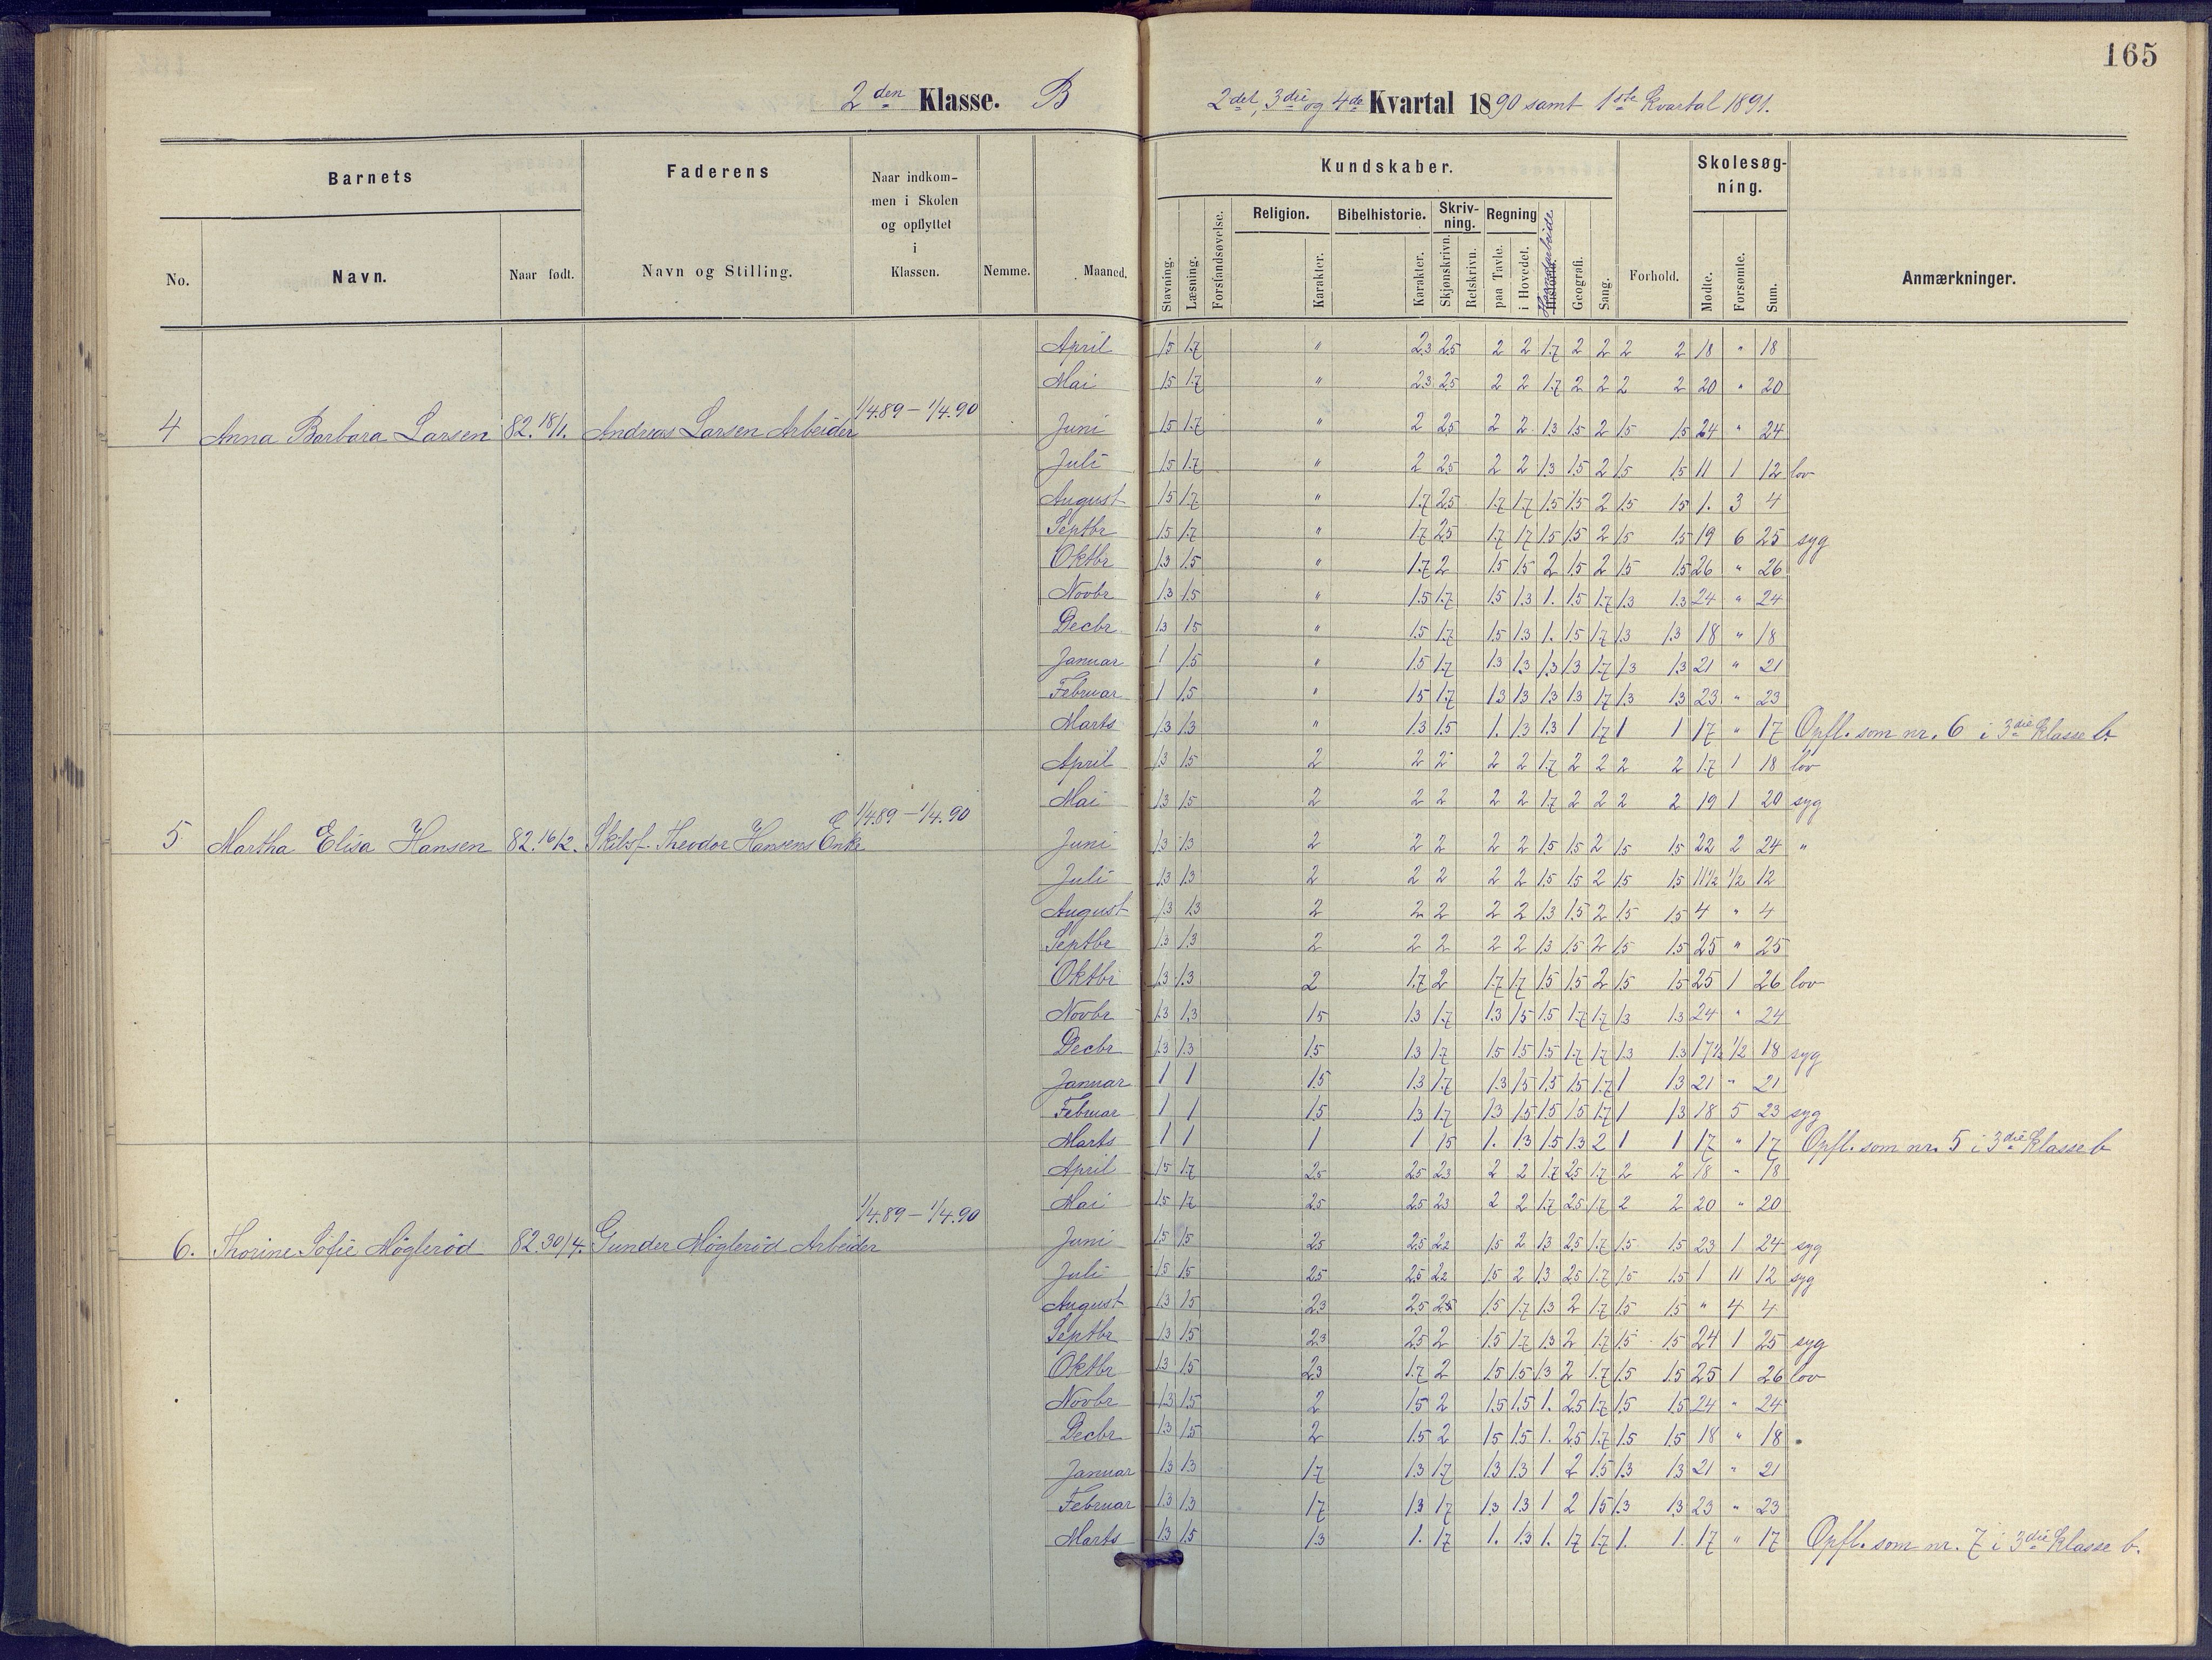 165
2den Klasse. B
2det, 3die og 4de Kvartal 1890 samt 1ste Kvartal 1891.
Barnets Faderens Naar indkommen i Skolen og opflyttet i Klassen. Nemme. Maaned.
No. Navn. Naar født. Navn og Stilling.
Kundskaber. Forhold. Skolesøgning. Anmærkninger.
Stavning. Læsning. Forstandsøvelse. Religion. Karakter. Bibelhistorie. Karakter. Skrivning. Skjønskrivn. Retskrivn. Regning paa Tavle. i Hovedet. Historie. Haandarbeide Geografi. Sang. Mødte. Forsømte. Sum.
April 1.5 1.7 " 2.3 2.5 2 2 1.7 2 2 2 2 18 " 18
Mai 1.5 1.7 " 2.3 2.5 2 2 1.7 2 2 2 2 20 " 20
4 Anna Barbara Larsen 82.18/1. Andreas Larsen Arbeider 1/4.89 – 1/4.90
Juni 1.5 1.7 " 2 2.5 2 2 1.3 1.5 2 1.5 1.5 24 " 24
Juli 1.5 1.7 " 2 2.5 2 2 1.3 1.5 2 1.5 1.5 11 1 12 lov
August 1.5 1.7 " 1.7 2.5 1.7 1.7 1.5 1.5 2 1.5 1.5 1. 3 4
Septbr 1.5 1.7 " 1.7 2.5 1.7 1.7 1.5 1.5 2 1.5 1.5 19 6 25 syg
Oktbr 1.3 1.5 " 1.7 2 1.5 1.5 2 1.5 2 1.5 1.5 26 " 26
Novbr 1.3 1.5 " 1.5 1.7 1.5 1.3 1. 1.5 1.7 1.3 1.3 24 " 24
Decbr 1.3 1.5 " 1.5 1.7 1.5 1.3 1. 1.5 1.7 1.3 1.3 18 " 18
Januar 1 1.5 " 1.5 1.7 1.3 1.3 1.3 1.3 1.7 1.3 1.3 21 " 21
Februar 1 1.5 " 1.5 1.7 1.3 1.3 1.3 1.3 1.7 1.3 1.3 23 " 23
Marts 1.3 1.3 " 1.3 1.5 1. 1.3 1.3 1 1.7 1 1 17 " 17 Opfl. som nr. 6 i 3die Klasse b.
April 1.3 1.5 2 2 2 2 2 1.7 2 2 2 2 17 1 18 lov
Mai 1.3 1.5 2 2 2 2 2 1.7 2 2 2 2 19 1 20 syg
5 Martha Elisa Hansen 82.16/2. Skibsf. Theodor Hansens Enke 1/4.89 – 1/4.90
Juni 1.3 1.3 2 2 2 2 2 1.5 1.5 2 1.5 1.5 22 2 24 "
Juli 1.3 1.3 2 2 2 2 2 1.5 1.5 2 1.5 1.5 11 1/2 1/2 12
August 1.3 1.3 2 2 2 2 2 1.3 1.5 2 1.5 1.5 4 " 4
Septbr 1.3 1.3 2 2 2 2 2 1.3 1.5 2 1.5 1.5 25 " 25
Oktbr 1.3 1.3 2 1.7 2 1.7 1.7 1.5 1.5 2 1.5 1.5 25 1 26 lov
Novbr 1.3 1.3 1.5 1.3 1.7 1.3 1.5 1.5 1.7 1.7 1.3 1.3 24 " 24
Decbr 1.3 1.3 1.5 1.3 1.7 1.5 1.5 1.5 1.7 1.7 1.3 1.3 17 1/2 1/2 18 syg
Januar 1 1 1.5 1.3 1.7 1.3 1.5 1.5 1.5 1.7 1 1.3 21 " 21
Februar 1 1 1.5 1.3 1.7 1.3 1.5 1.5 1.5 1.7 1 1.3 18 5 23 syg
Marts 1 1 1 1 1.5 1. 1.3 1.5 1.3 2 1 1 17 " 17 Opfl. som nr. 5 i 3die Klasse b
April 1.5 1.7 2.5 2.5 2.3 2 2 1.7 2.5 1.7 2 2 18 " 18
Mai 1.5 1.7 2.5 2.5 2.3 2 2 1.7 2.5 1.7 2 2 20 " 20
6. Thorine Sofie Møglerød 82.30/4. Gunder Møglerød Arbeider 1/4.89 – 1/4.90
Juni 1.5 1.5 2.5 2.5 2.2 1.5 2 1.3 2.5 1.7 1.5 1.5 23 1 24 syg
Juli 1.5 1.5 2.5 2.5 2.2 1.5 2 1.3 2.5 1.7 1.5 1.5 1 11 12 syg
August 1.3 1.5 2.3 2.5 1.5 1.7 1.3 2 1.7 1.5 1.5 " 4 4
Septbr 1.3 1.5 2.3 2.5 2 1.5 1.7 1.3 2 1.7 1.5 1.5 24 1 25 syg
Oktbr 1.3 1.5 2.3 1.7 2 1.5 1.5 1.3 2 1.7 1.5 1.5 25 1 26 lov
Novbr 1.3 1.5 2 1.5 2 1.5 1.5 1. 2.5 1.7 1.5 1.5 24 " 24
Decbr 1.3 1.5 2 1.5 2 1.5 1.5 1. 2.5 1.7 1.5 1.5 18 " 18
Januar 1.3 1.3 1.7 1.3 1.7 1.3 1.3 1 2 1.5 1.3 1.3 21 " 21
Februar 1.3 1.3 1.7 1.3 1.7 1.3 1.3 1 2 1.5 1.3 1.3 23 " 23
Marts 1.3 1.5 1.3 1. 1.7 1. 1.3 1. 1.7 1.7 1. 1. 17 " 17 Opfl. som nr. 7 i 3die Klasse b.